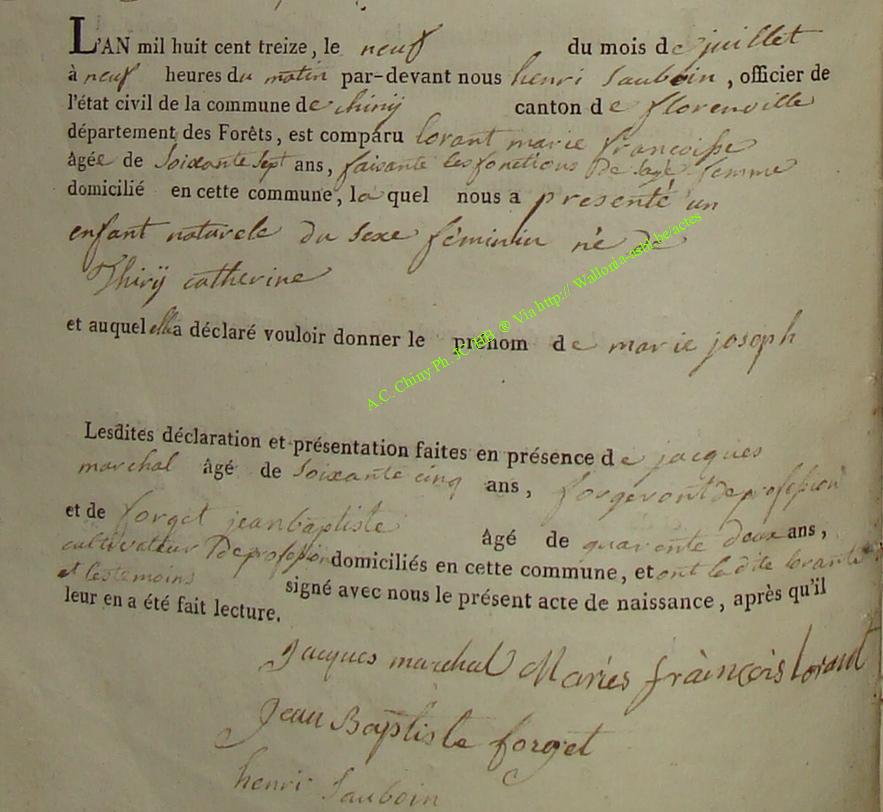 L'AN mil huit cent treize, le neuf du mois de juillet
à neuf heures du matin par-devant nous henri Sauboin, officier de
l'état civil de la commune de chinÿ canton de florenville
département des Forêts, est comparu lorant marie françoisse
âgée de Soixante Sept ans, faisante les fonctions De sage femme
domicilié en cette commune, la quel nous a presenté un
enfant naturele du Sexe féminin né de
Thirÿ catherine
et auquel elle a déclaré vouloir donner le prénom de marie joseph
Lesdites déclaration et présentation faites en présence de jacques
marchal âgé de Soixante cinq ans, forgeront de profession
et de forget jean baptiste âgé de quarente deux ans,
cultivateur De profession domiciliés en cette commune, et ont la dite lorante
et les temoins signé avec nous le présent acte de naissance, après qu'il
leur en a été fait lecture.
Jacques marchal Maries frainçois lorant
Jean Baptiste forget
henri Sauboin
A.C. Chiny Ph. JC ® Via http:// Wallonia-asbl.be/actes